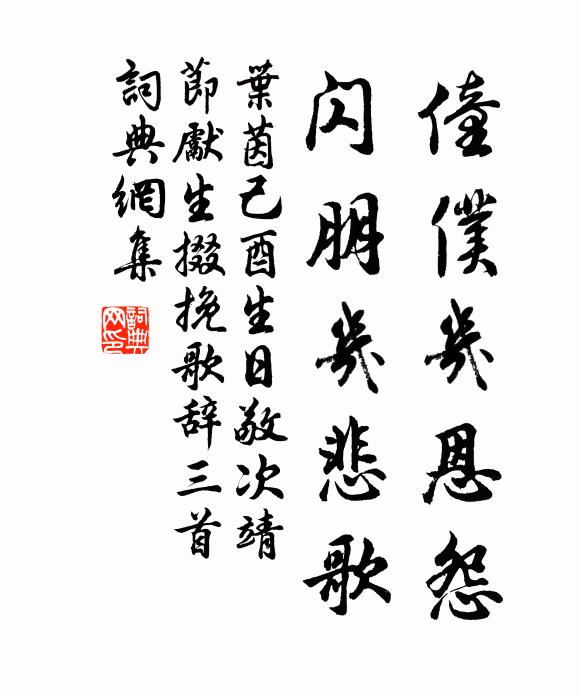 僮僕幾恩怨
閃朋幾悲歌
葉茵己酉生日敬次靖
節獻生掇挽歌辞三首
詞典網集
詞典网印